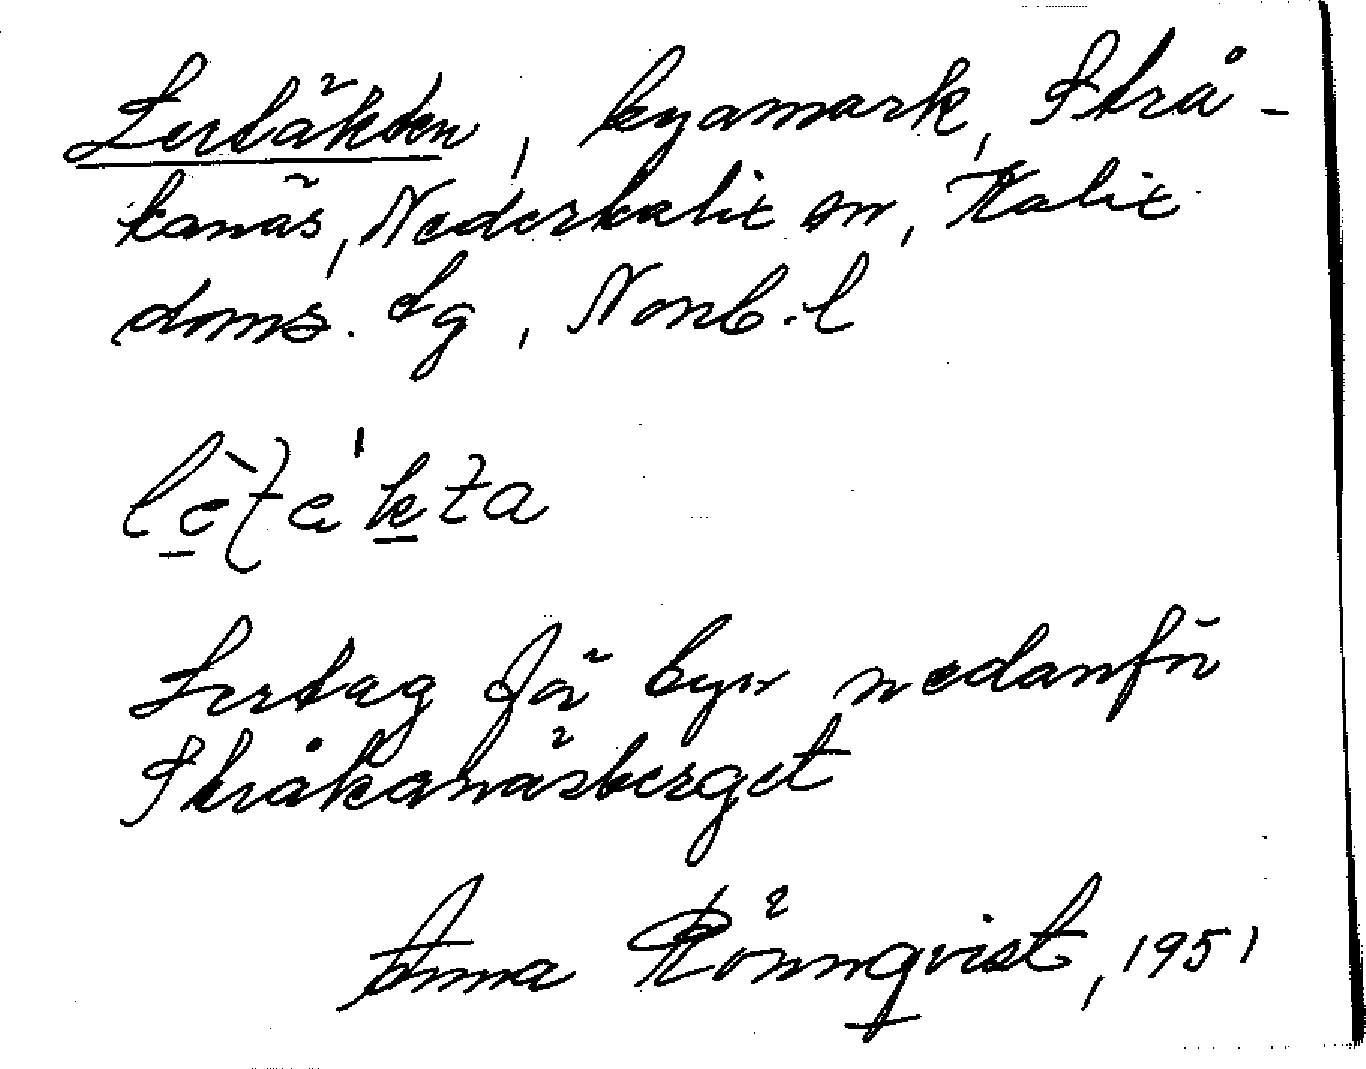 Lertäkten, byamark, Strå-
kanäs, Nederkalix sn, Kalix
doms. lg, Norrb. l

Lertag för byn nedanför
Stråkanäsberget
Anna Rönnqvist, 1951